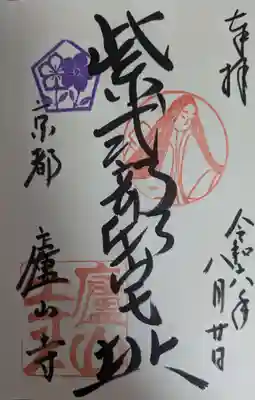 奉拝
令和六年
八月廿日
紫式部邸宅址
京都
廬山寺
廬山